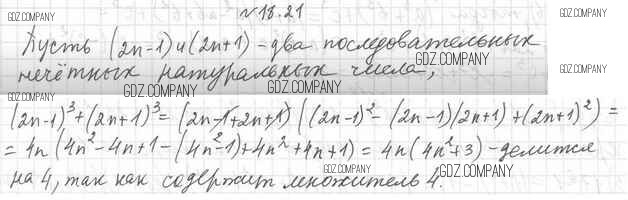 №18.21
GDZ.COMPANY
GDZ.COMPANY
Пусть (2n-1) и (2n+1) - два последовательных
GDZ.COMPANY
нечётных натуральных числа,
GDZ.COMPANY
GDZ.COMPANY
GDZ.COMPANY
GDZ.COMPANY
(2n-1)³+(2n+1)³=(2n-1+2n+1)((2n-1)²-(2n-1)(2n+1)+(2n+1)²)=
=4n(4n²-4n+1-(4n²-1)+4n²+4n+1)=4n(4n²+3)-делится
GDZ.COMPANY
GDZ.COMPANY
на 4, так как содержит множитель 4.